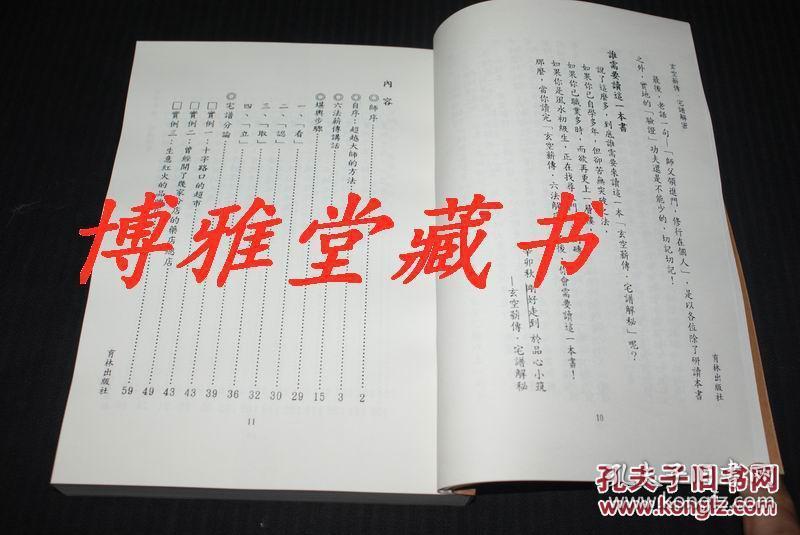 玄空薪傳．宅譜解密
最後，老話一句—「師父領進門，修行在個人」，是以各位除了研讀本書
之外，實地的「驗證」功夫還是不能少的，切記切記！
誰需要讀這一本書
說了這麼多，到底誰需要來讀這一本「玄空薪傳．宅譜解秘」呢？
如果你已自學多年，但卻苦無突破
法，
如果你已職業多時，而欲再更上一層樓，
如果你是風水初級生，正在找尋
門
磚
那麼，當你讀完「玄空薪傳．六法解
後，你會需要讀這一本書！
辛卯秋 剛好走到 於品心小筑
—玄空薪傳．宅譜解秘
育林出版社
10
內容
◎師序
2
◎自序：超越大師的方法
3
◎六法薪傳講話
15
◎堪輿步驟
29
一、「看」
30
二、「認」
32
三、「取」
36
四、「立」
39
◎宅譜分論
43
□實例一：十字路口的超市
43
□實例二：曾經開了幾家
店的藥店總店
49
□實例三：生意紅火的品牌
59
育林出版社
11
博雅堂藏书
孔夫子旧书网
www.kongfz.com